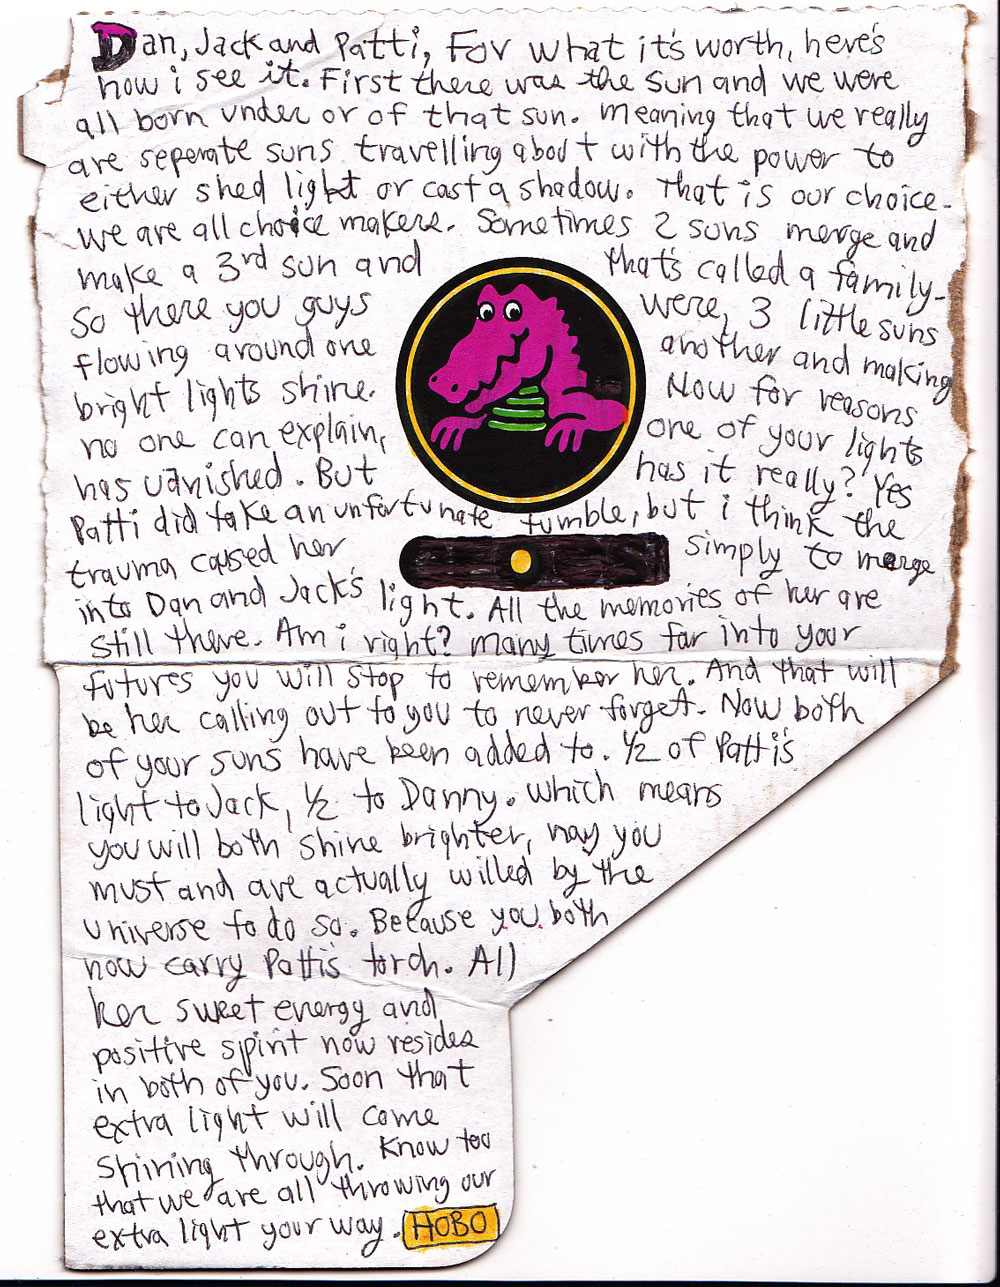 Dan, Jack and Patti, For what it's worth, here's
how i see it. First there was the sun and we were
all born under or of that sun. Meaning that we really
are seperate suns travelling about with the power to
either shed light or cast a shadow. That is our choice.
We are all choice makers. Sometimes 2 suns merge and
make a 3rd sun and that's called a family.
So there you guys were, 3 little suns
flowing around one another and making
bright lights shine. Now for reasons
no one can explain, one of your lights
has vanished. But has it really? Yes
Patti did take an unfortunate tumble, but i think the
trauma caused her simply to merge
into Dan and Jack's light. All the memories of her are
still there. Am i right? Many times far into your
futures you will stop to remember her. And that will
be her calling out to you to never forget. Now both
of your suns have been added to. 1/2 of Patti's
light to Jack, 1/2 to Danny. Which means
you will both shine brighter, nay you
must and are actually willed by the
universe to do so. Because you both
now carry Patti's torch. All
her sweet energy and
positive spirit now resides
in both of you. Soon that
extra light will come
shining through. Know too
that we are all throwing our
extra light your way. HOBO